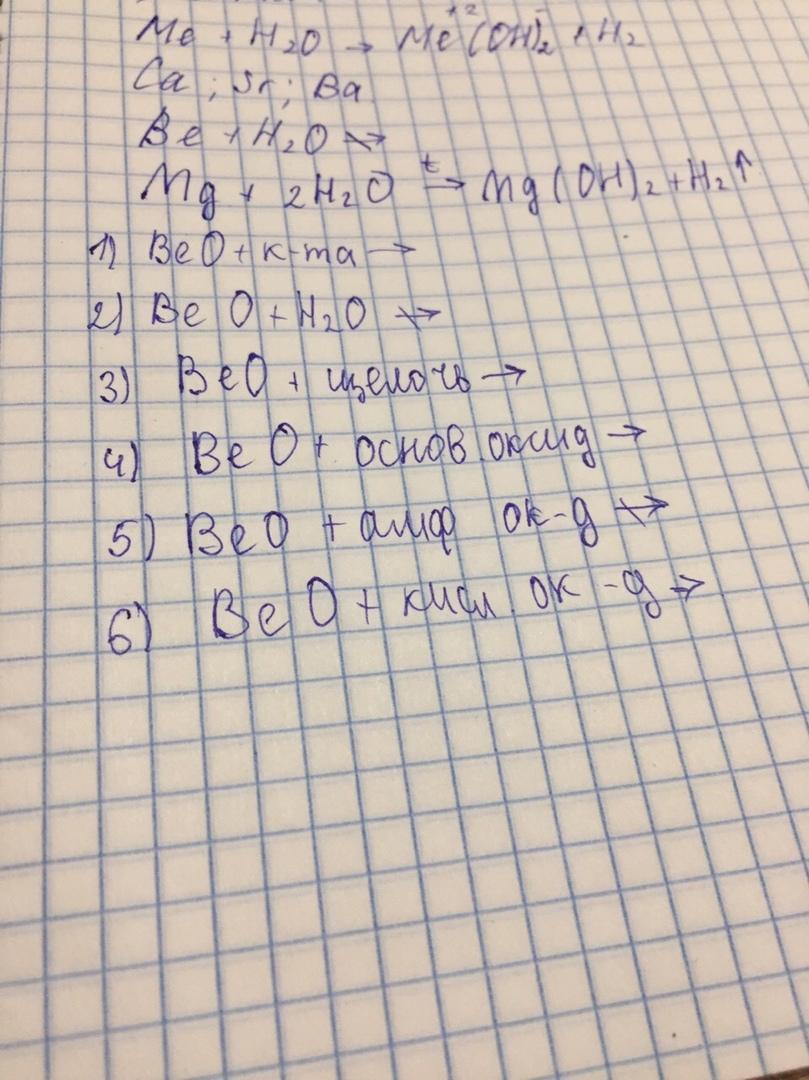 Me + H₂O → Me⁺²(OH)₂⁻ + H₂
Ca ; Sr ; Ba
Be + H₂O ↛
Mg + 2H₂O →ᵗ Mg(OH)₂ + H₂↑
1) BeO + к-та →
2) BeO + H₂O ↛
3) BeO + щелочь →
4) BeO + основ оксид →
5) BeO + амф ок-д ↛
6) BeO + кисл. ок-д →